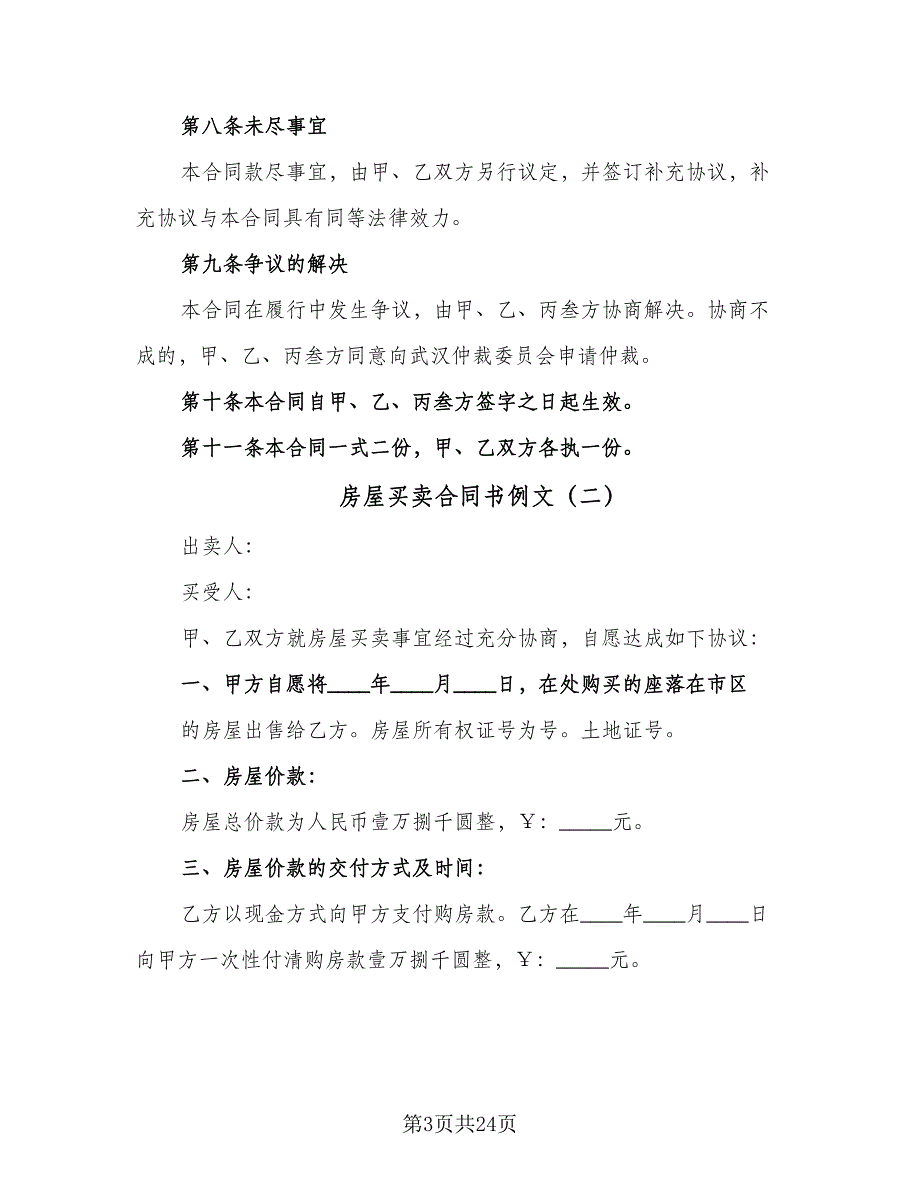 第八条未尽事宜
本合同款尽事宜，由甲、乙双方另行议定，并签订补充协议，补
充协议与本合同具有同等法律效力。
第九条争议的解决
本合同在履行中发生争议，由甲、乙、丙叁方协商解决。协商不
成的，甲、乙、丙叁方同意向武汉仲裁委员会申请仲裁。
第十条本合同自甲、乙、丙叁方签字之日起生效。
第十一条本合同一式二份，甲、乙双方各执一份。
房屋买卖合同书例文（二）
出卖人：
买受人：
甲、乙双方就房屋买卖事宜经过充分协商，自愿达成如下协议：
一、甲方自愿将____年____月____日，在处购买的座落在市区
的房屋出售给乙方。房屋所有权证号为号。土地证号。
二、房屋价款：
房屋总价款为人民币壹万捌千圆整，￥：_____元。
三、房屋价款的交付方式及时间：
乙方以现金方式向甲方支付购房款。乙方在____年____月____日
向甲方一次性付清购房款壹万捌千圆整，￥：_____元。
第3页共24页